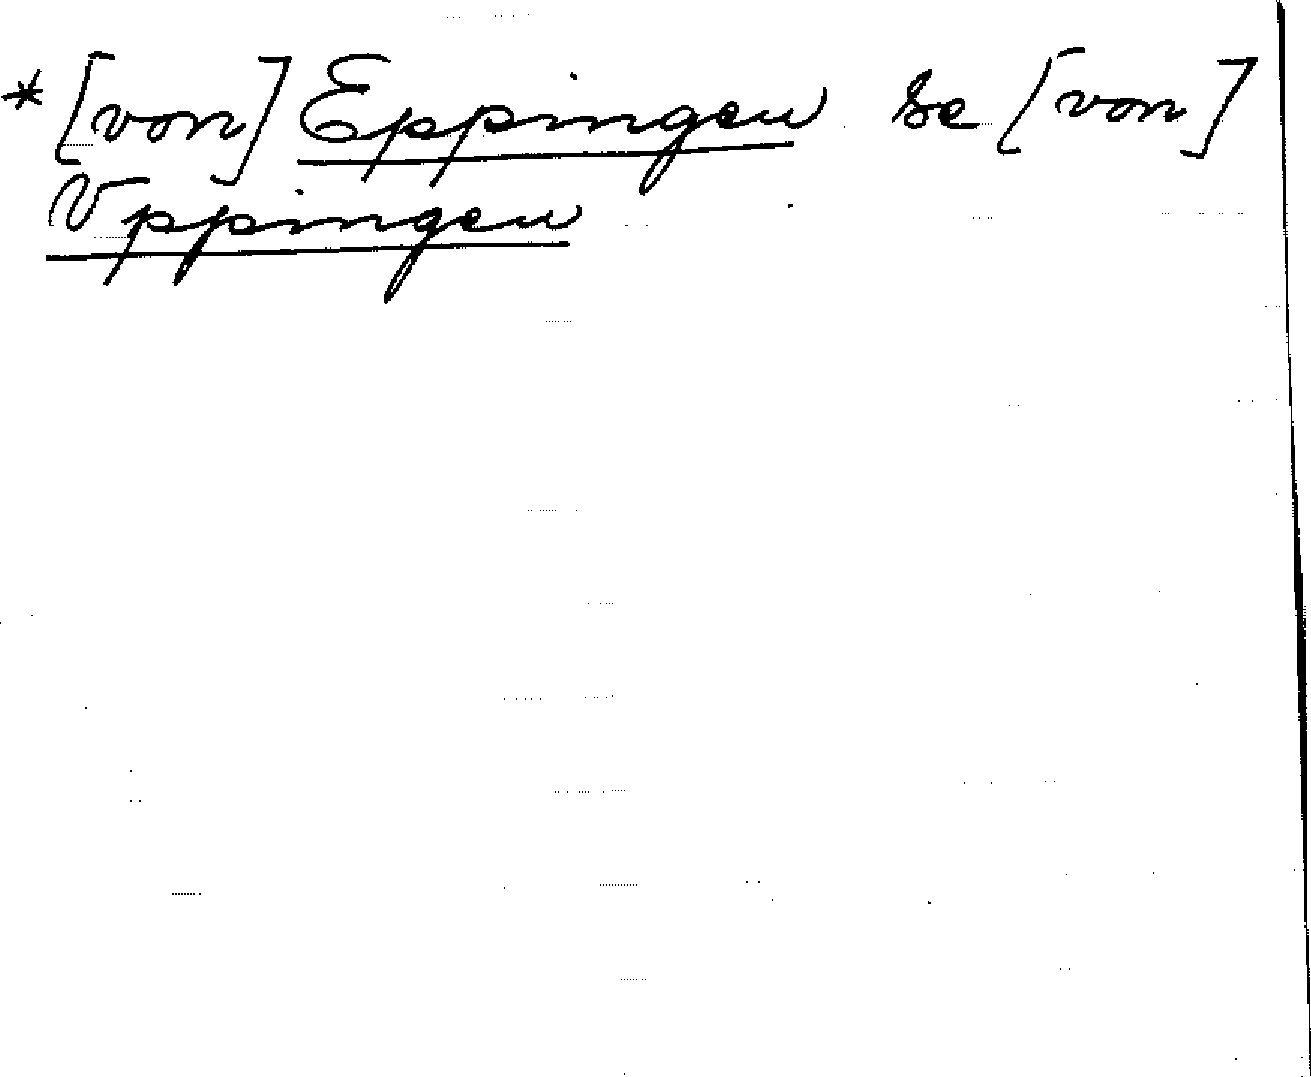 * [von] Eppingen se [von]
Vppingen